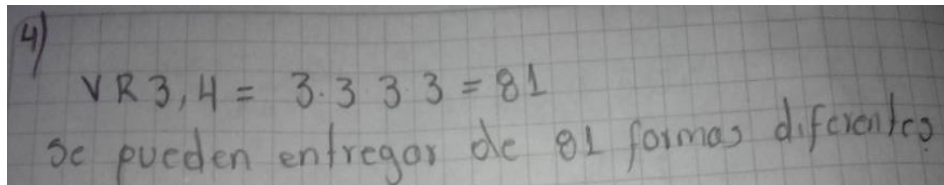 4)
VR3,4 = 3.3 3 3 = 81
se pueden entregar de 81 formas diferentes